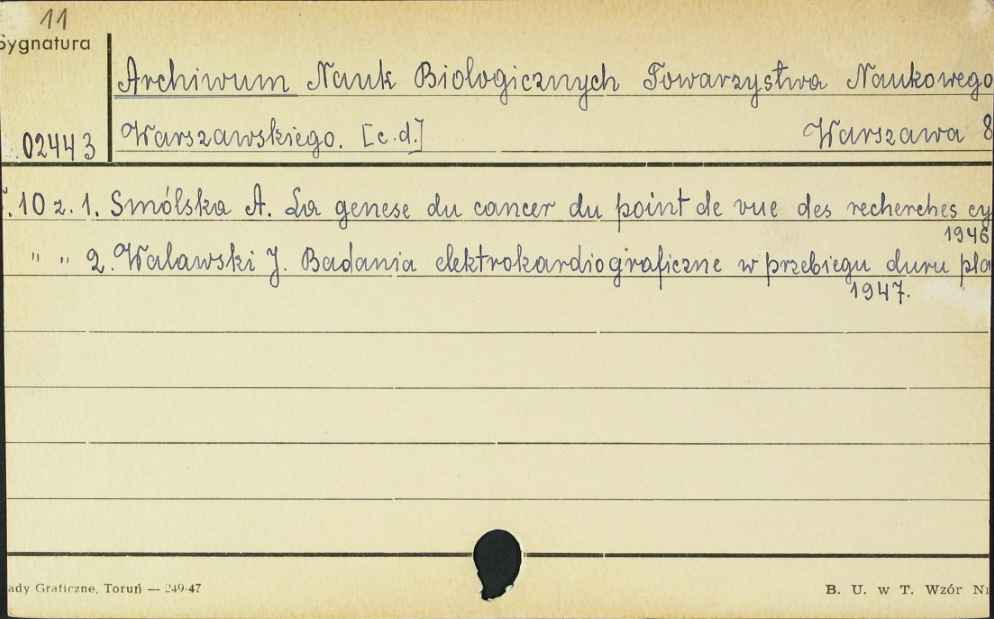 11
Sygnatura
Archiwum Nauk Biologicznych Towarzystwa Naukowego
02443 Warszawskiego. [c.d.] Warszawa 8
T. 10 z. 1. Smólska A. La genese du cancer du point de vue des recherches cy
1946
" " 2. Walawski J. Badania elektrokardiograficzne w przebiegu duru pla
1947.
ady Graficzne, Toruń — 249-47 B. U. w T. Wzór Nr